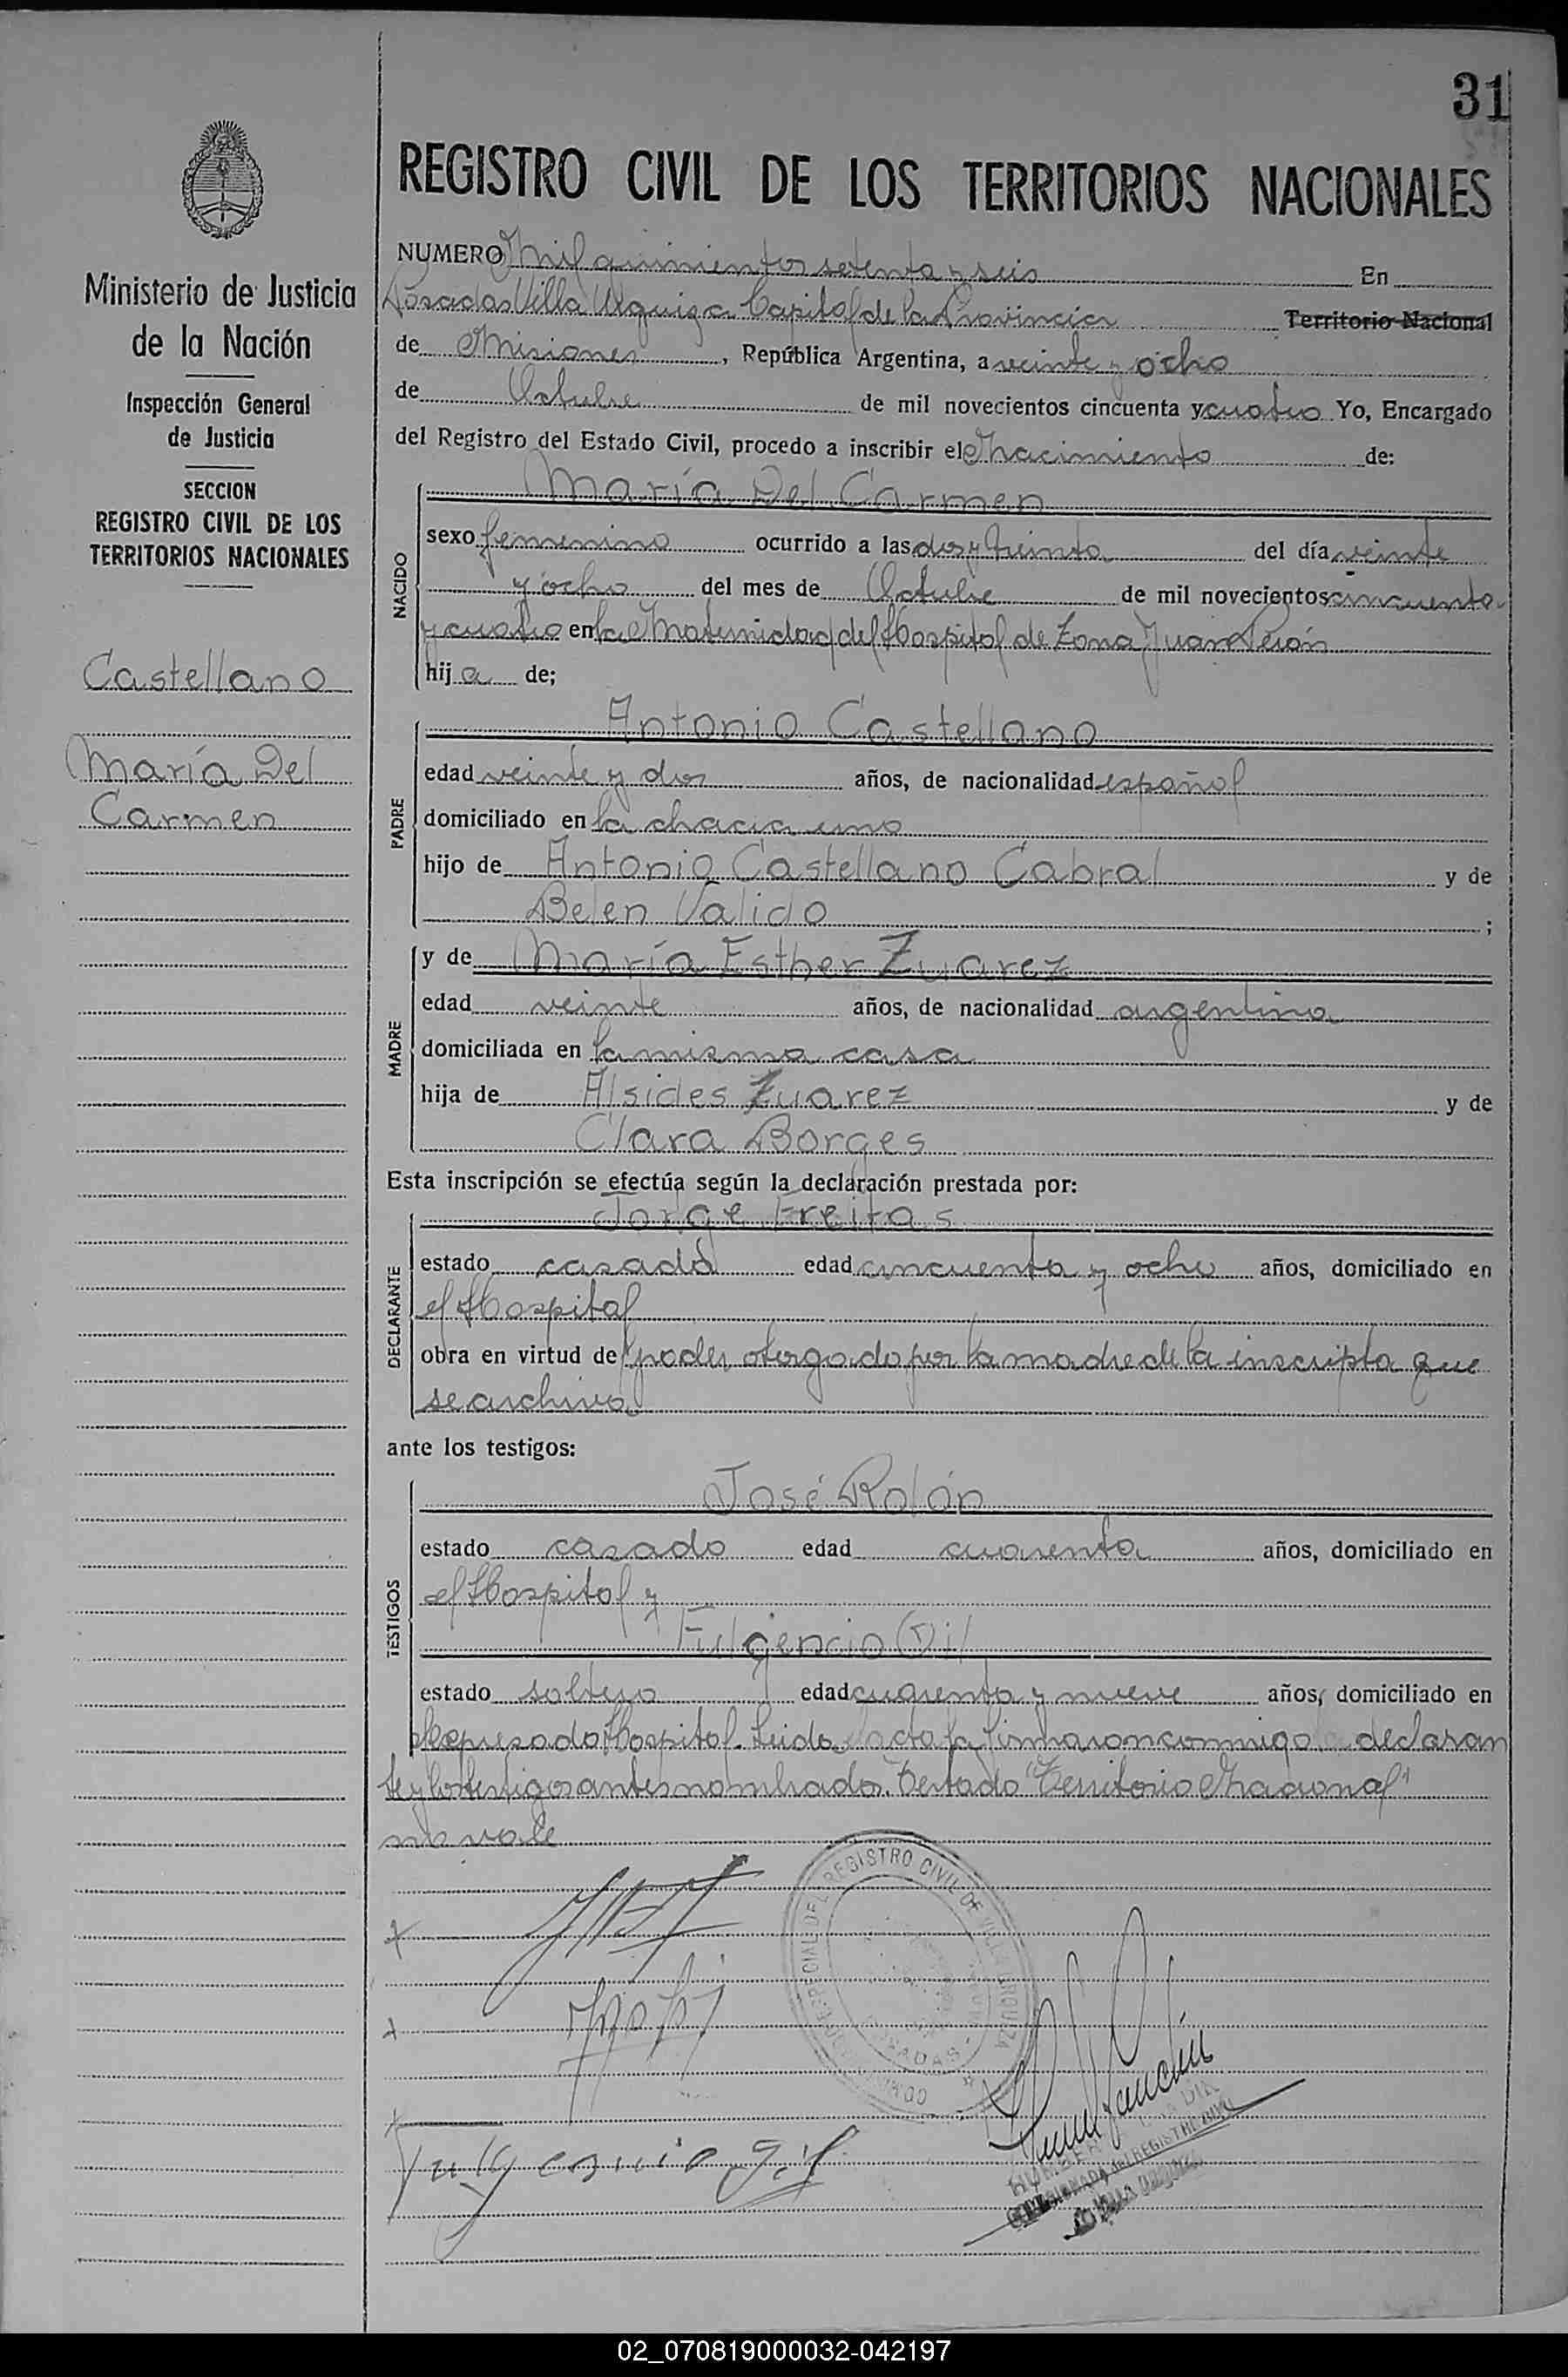 31
REGISTRO CIVIL DE LOS TERRITORIOS NACIONALES
Ministerio de Justicia
de la Nación
Inspección General
de Justicia
SECCION
REGISTRO CIVIL DE LOS
TERRITORIOS NACIONALES
Castellano
María Del
Carmen
NUMERO Mil quinientos setenta y seis En
Posadas Villa Urquiza Capital de la Provincia Territorio Nacional
de Misiones, República Argentina, a veinte y ocho
de Octubre de mil novecientos cincuenta y cuatro Yo, Encargado
del Registro del Estado Civil, procedo a inscribir el Nacimiento de:
María Del Carmen
NACIDO
sexo femenino ocurrido a las dos y treinta del día veinte
y ocho del mes de Octubre de mil novecientos cincuenta
y cuatro en la Maternidad del Hospital de Zona Juan Perón
hija de;
Antonio Castellano
PADRE
edad veinte y dos años, de nacionalidad español
domiciliado en la chacra uno
hijo de Antonio Castellano Cabral y de
Belen Valido ;
MADRE
y de María Esther Zuarez
edad veinte años, de nacionalidad argentina
domiciliada en la misma casa
hija de Alsides Zuarez y de
Clara Borges
Esta inscripción se efectúa según la declaración prestada por:
Jorge Freitas
DECLARANTE
estado casado edad cincuenta y ocho años, domiciliado en
el Hospital
obra en virtud de poder otorgado por la madre de la inscripta que
se archiva
ante los testigos:
José Rolón
TESTIGOS
estado casado edad cuarenta años, domiciliado en
el Hospital y
Fulgencio Gil
estado soltero edad cuarenta y nueve años, domiciliado en
el expresado Hospital. Leida el acta la firmaron conmigo el declaran
te y los testigos antes nombrados. Testado "Territorio Nacional"
no vale
REGISTRO CIVIL DE VILLA URQUIZA
POSADAS
Fulgencio Gil
02_070819000032-042197